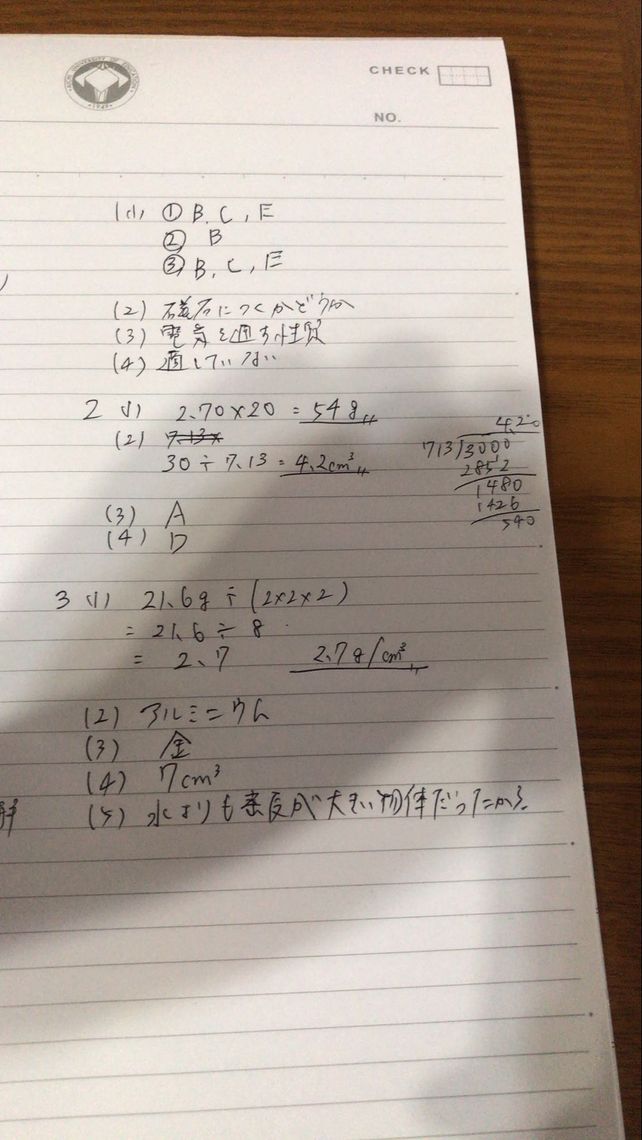 CHECK
NO.
(1) ① B, C, E
② B
③ B, C, E
(2) 磁石につくかどうか
(3) 電気を通す性質
(4) 適していない
2 (1) 2.70×20 = 54g
(2) 7.13×
30÷7.13 = 4.2cm³
4.20
713)3000
2852
1480
1426
540
(3) A
(4) D
3 (1) 21.6g÷(2×2×2)
= 21.6÷8
= 2.7 2.7g/cm³
(2) アルミニウム
(3) 金
(4) 7cm³
(5) 水よりも密度が大きい物体だったから